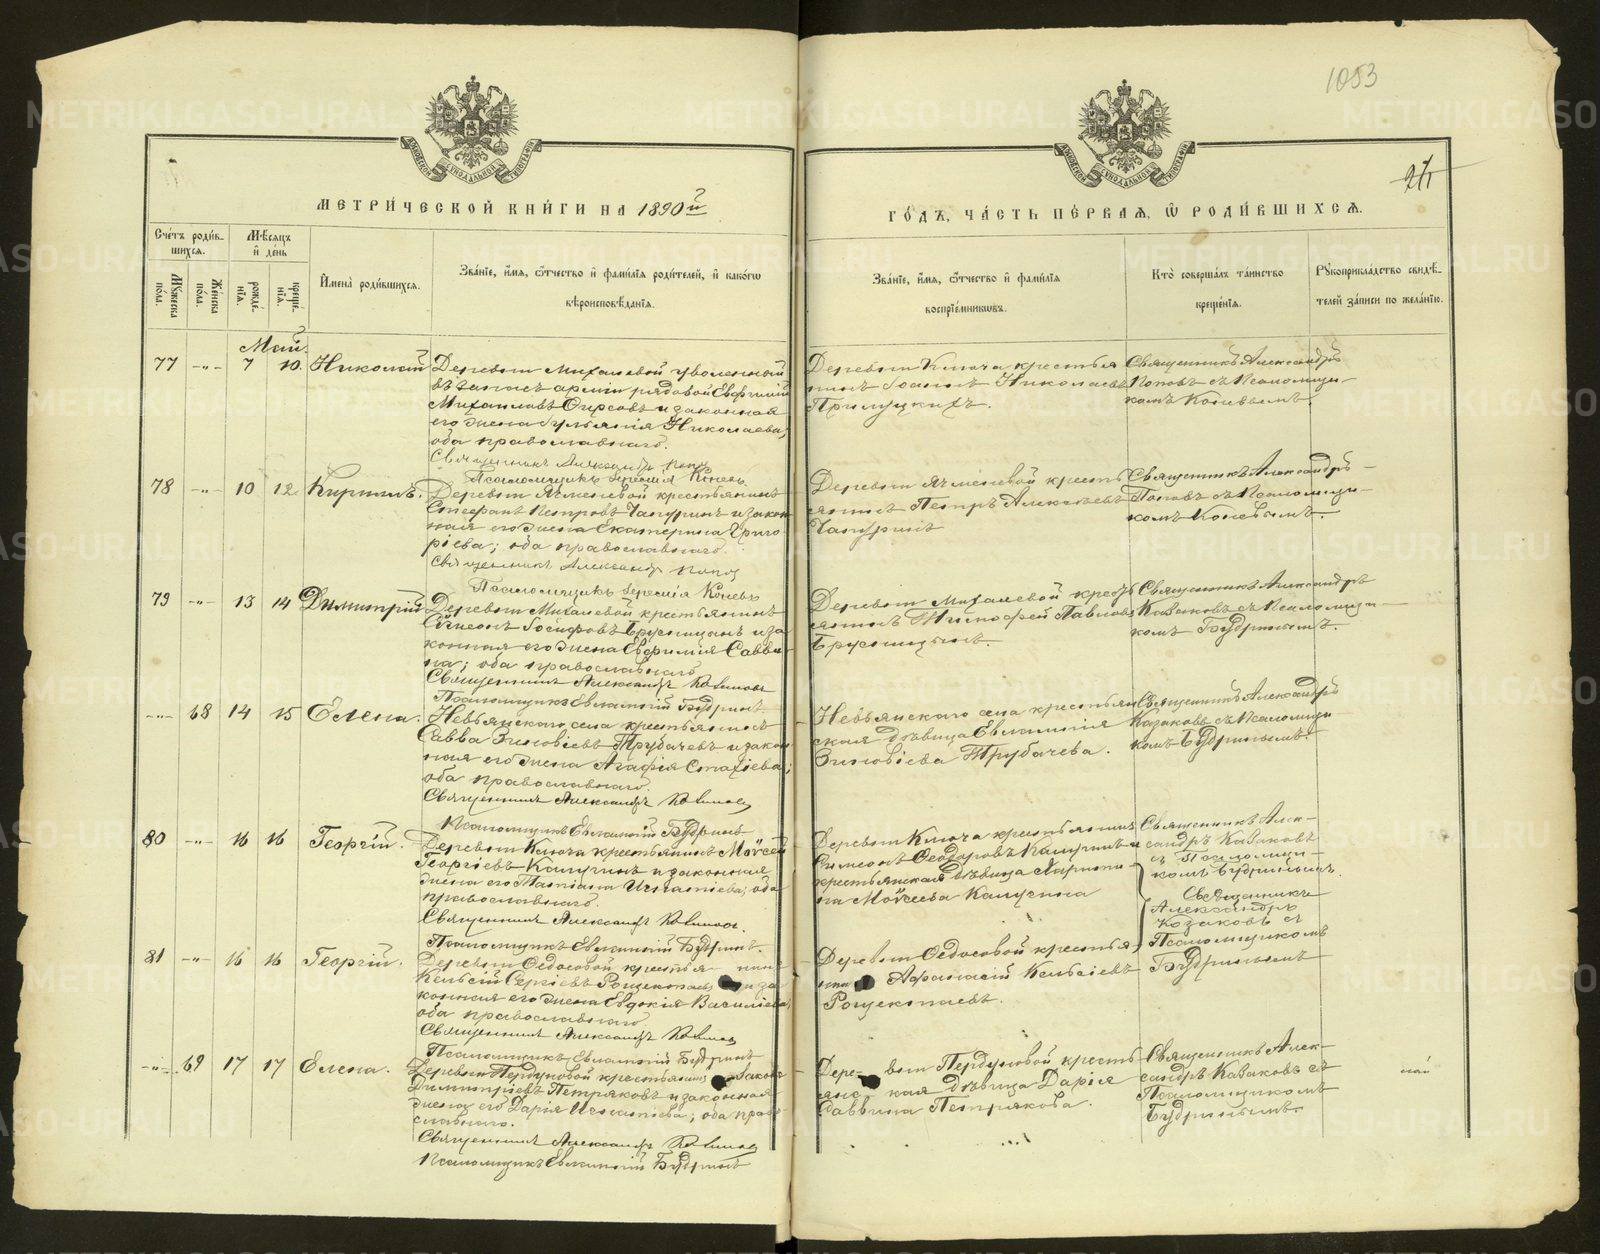 1053
21
МЕТРИ́ЧЕСКОЙ КНИ́ГИ НА 1890й
ГО́ДЪ, ЧА́СТЬ ПЕ́РВАЯ, Ѡ РОДИ́ВШИХСЯ.
Сче́тъ роди́в-
шихся.
Мꙋжеска по́ла.
Же́нска по́ла.
Мѣ́сяцъ
и҆ де́нь
рожде́-
нїѧ.
креще́-
нїѧ.
И҆мена̀ роди́вшихся.
Зва́нїе, и҆́мя, ѻ҆́тчество и҆ фами́лїя роди́телей, и҆ како́гѡ
вѣроисповѣ́данїя.
Зва́нїе, и҆́мя, ѻ҆́тчество и҆ фами́лїя
воспрїе́мникѡвъ.
Кто̀ соверша́лъ та́инство
креще́нїя.
Рꙋкоприкла́дство свидѣ́-
телей за́писи по жела́нїю.
Май.
77 -"- 7 10. Николай
Деревни Михалевой уволенный
въ запасъ арміи рядовой Евфимій
Михаиловъ Фирсовъ и законная
его жена Іуліанія Николаева,
оба православнаго.
Священникъ Александръ Попов
Псаломщикъ Іеремія Коневъ
Деревни Ключа крестья
нинъ Іоаннъ Николаевъ
Прилуцкихъ.
Священникъ Александръ
Поповъ съ Псаломщи-
комъ Коневымъ.
78 -"- 10 12 Кириллъ.
Деревни Ячменевой крестьянинъ
Стефанъ Петровъ Чапуринъ и закон
ная его жена Екатерина Григо
ріева; оба православнаго.
Священникъ Александръ Попов
Псаломщикъ Іеремія Коневъ
Деревни Ячменевой кресть
янинъ Петръ Алексѣевъ
Чапуринъ
Священникъ Александръ
Поповъ съ Псаломщи-
комъ Коневымъ.
79 -"- 13 14 Димитрій
Деревни Михалевой крестьянинъ
Сѵмеонъ Іосифовъ Брусницынъ и за
конная его жена Евфимія Савви
на; оба православнаго.
Священникъ Александръ Казаковъ
Псаломщикъ Евлампій Бударинъ
Деревни Михалевой кресть
янинъ Тимофей Павловъ
Брусницынъ.
Священникъ Александръ
Казаковъ съ Псаломщи-
комъ Будринымъ.
-"- 68 14 15 Елена.
Невьянскаго села крестьянинъ
Савва Зиновіевъ Трубачевъ и закон
ная его жена Агафія Стахіева;
оба православнаго.
Священникъ Александръ Казаковъ
Псаломщикъ Евлампій Будринъ
Невьянскаго села крестьян
ская дѣвица Евлампія
Зиновіева Трубачева.
Священникъ Александръ
Казаковъ съ Псаломщи
комъ Будринымъ.
80 -"- 16 16 Георгій.
Деревни Ключа крестьянинъ Моѵсей
Георгіевъ Калугинъ и законная
жена его Татіана Игнатіева, оба
православнаго.
Священникъ Александръ Казаковъ.
Псаломщикъ Евлампій Будринъ.
Деревни Ключа крестьянинъ
Симеонъ Ѳеодоровъ Калугинъ и
крестьянская дѣвица
на Моѵсеева Калугина
Священникъ Алек-
сандръ Казаковъ
съ Псаломщи-
комъ Будринымъ.
81 -"- 16 16 Георгій.
Деревни Ѳедосовой крестья нинъ
Кельсій Сергіевъ Рощектаевъ и за
конная его жена Евдокія Василіева,
оба православнаго
Священникъ Александръ Казаковъ
Псаломщикъ Евлампій Будринъ
Деревни Ѳедосовой крестья
нинъ Афанасій Кельсіевъ
Рощектаевъ.
Священникъ
Александръ
Козаковъ съ
Псаломщикомъ
Будринымъ
-"- 69 17 17 Елена.
Деревни Пердуновой крестьянинъ Іаковъ
Димитріевъ Петряковъ и законная
жена его Дарія Игнатіева; оба право
славнаго.
Священникъ Александръ Казаковъ
Псаломщикъ Евлампій Будринъ
Дере- вни Пердуновой кресть
янс- кая дѣвица Дарія
Саввина Петрякова.
Священникъ Алек-
сандръ Казаковъ съ
Псаломщикомъ
Будринымъ.